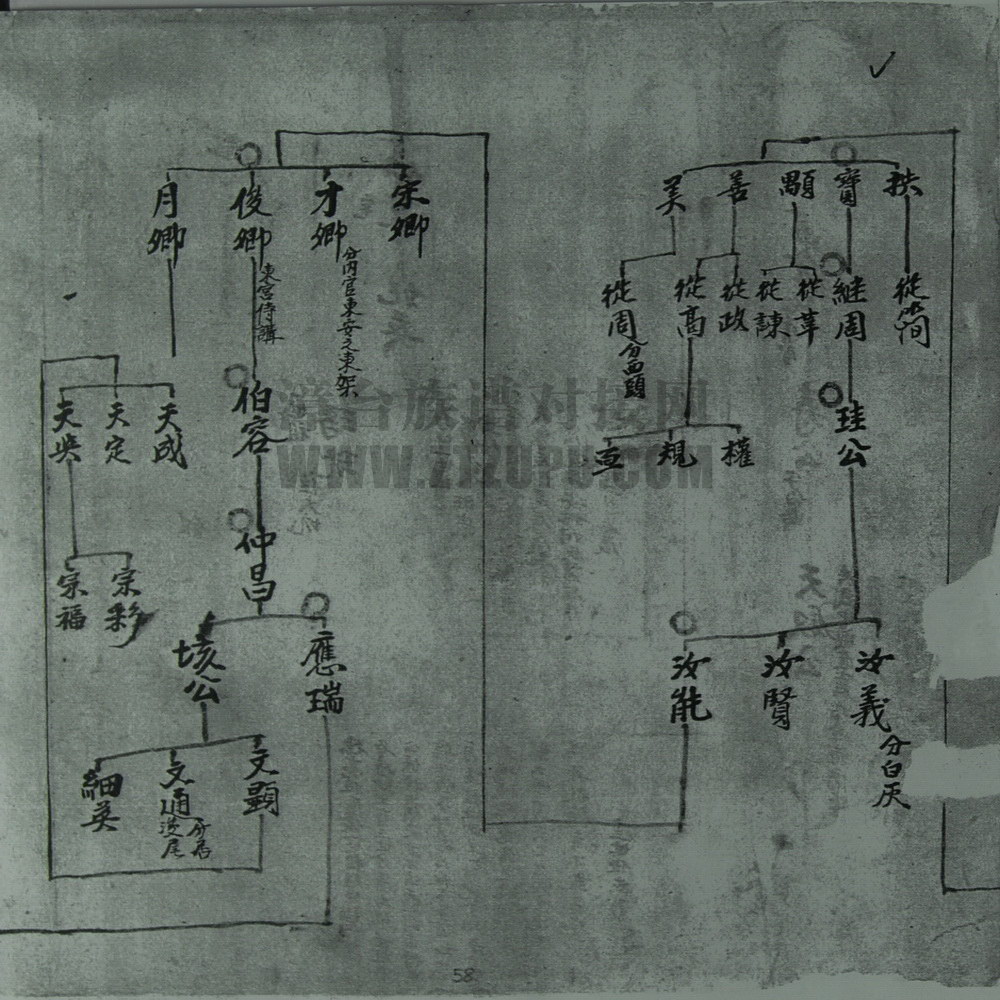 扶
寶
顒
善
美
從簡
継周
從革
從諫
從政
從高
從周
分面頭
權
規
亘
珪公
汝義
分白灰
汝賢
汝能
宋卿
才卿
分內官東安之東架
俊卿
東宮侍講
月卿
伯容
仲昌
應瑞
垓公
文顯
文通
分居漤尾
細英
天成
天定
天英
宗彩
宗福
漳台族譜对接网
WWW.ZTZUPU.COM
58